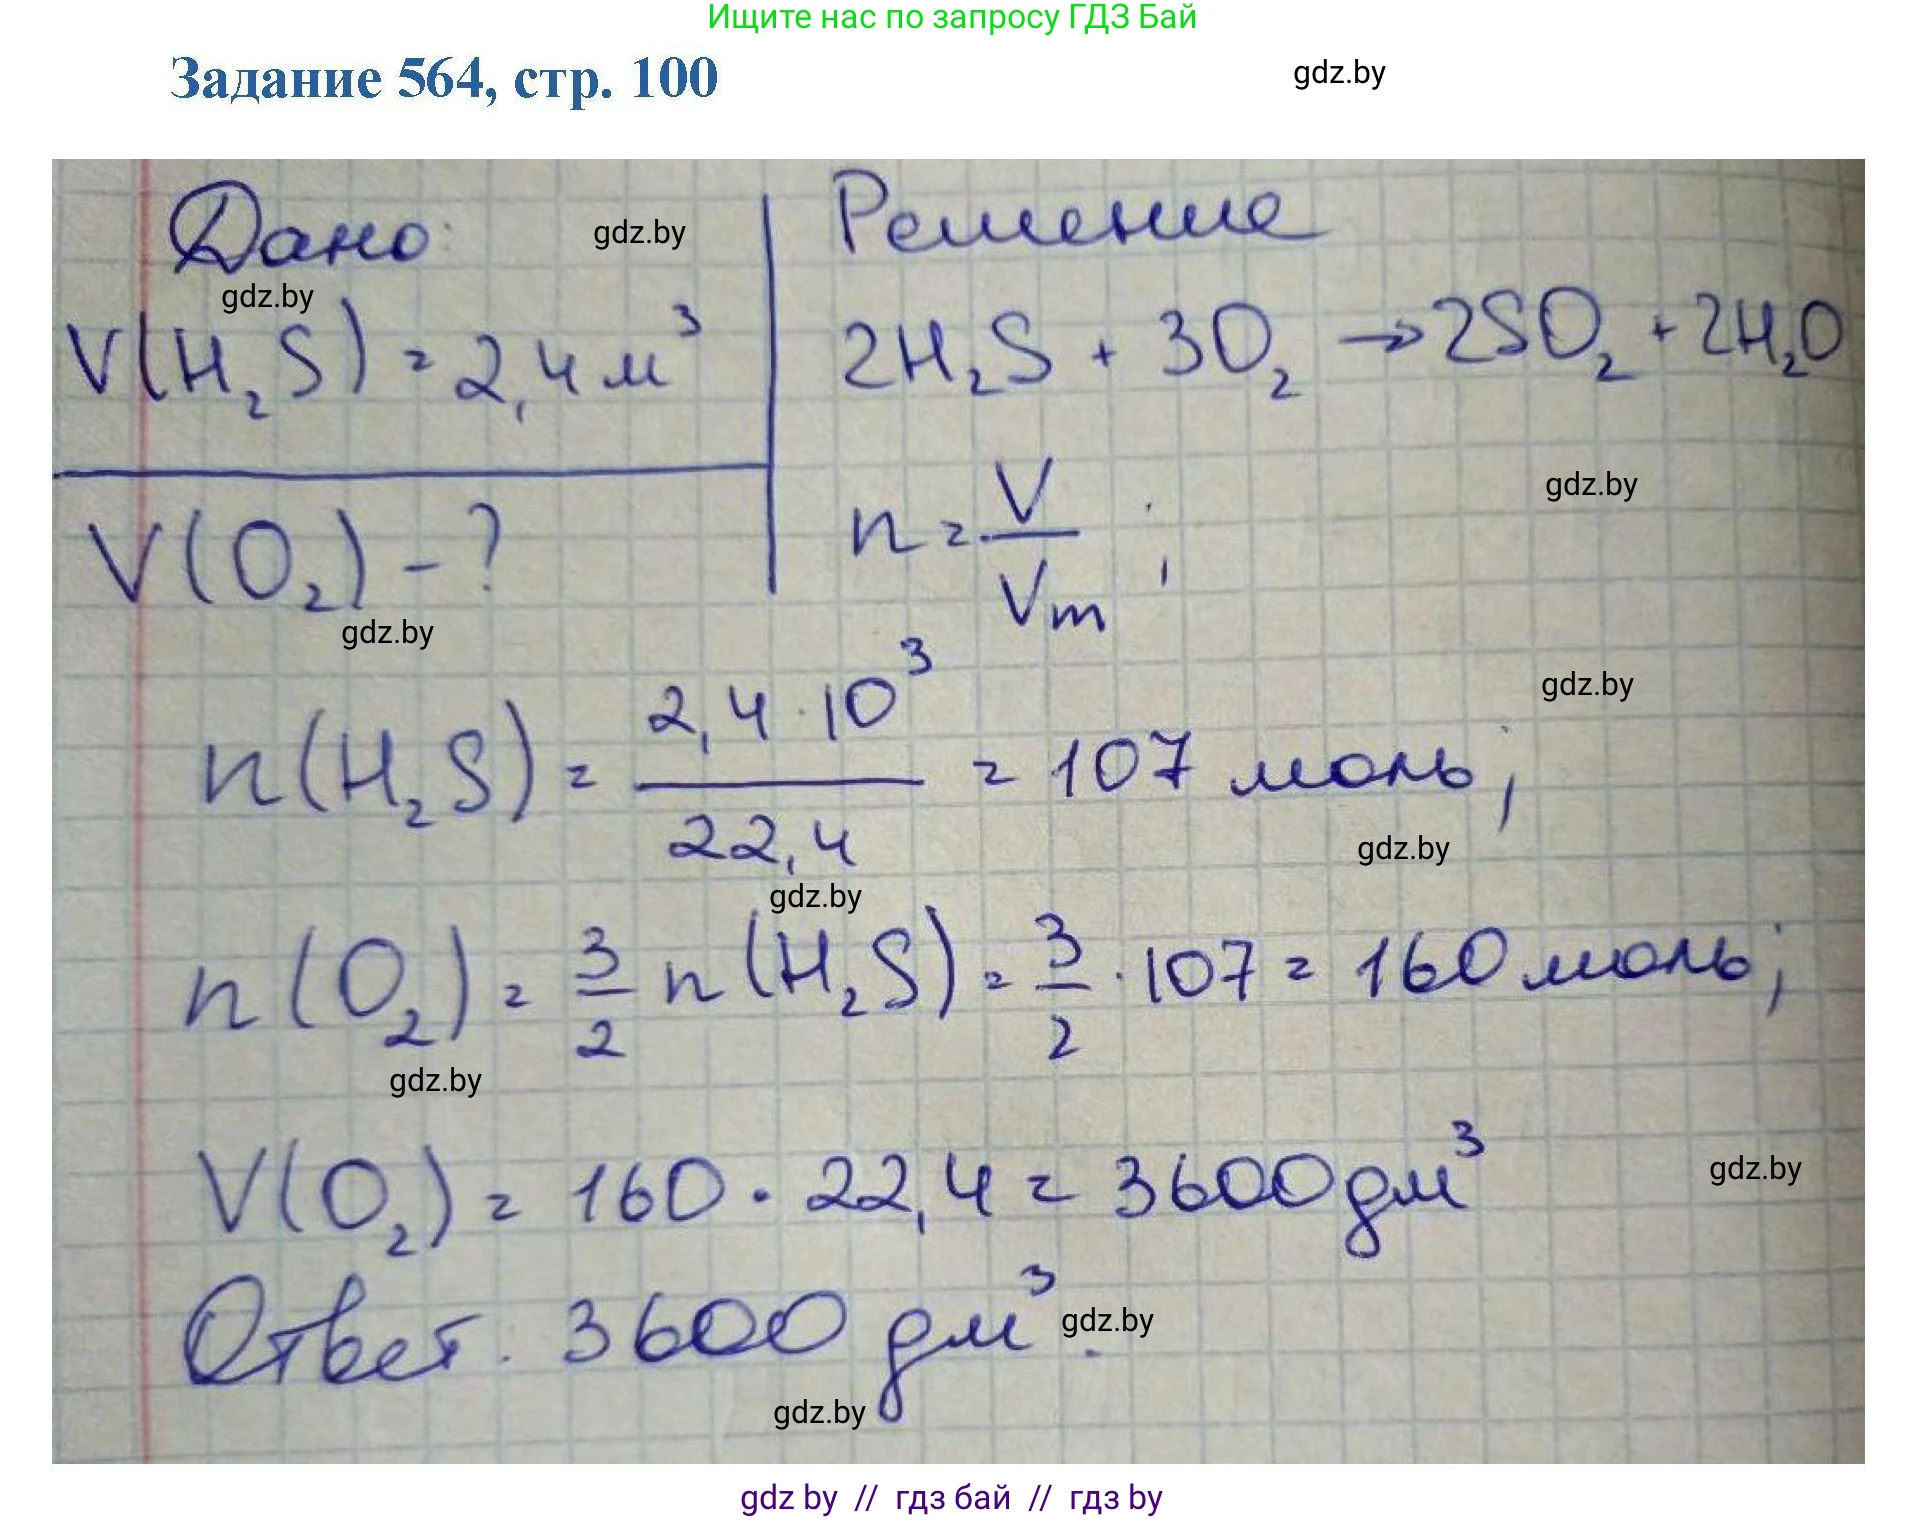 Ищите нас по запросу ГДЗ Бай
Задание 564, стр. 100
gdz.by
Дано:
gdz.by
Решение
gdz.by
V(H₂S) = 2,4 м³
2H₂S + 3O₂ → 2SO₂ + 2H₂O
gdz.by
V(O₂) - ?
n = V/Vm ;
gdz.by
gdz.by
n(H₂S) = 2,4·10³/22,4 = 107 моль;
gdz.by
gdz.by
n(O₂) = 3/2 n(H₂S) = 3/2 · 107 = 160 моль;
gdz.by
V(O₂) = 160 · 22,4 = 3600 дм³
gdz.by
Ответ: 3600 дм³.
gdz.by
gdz.by
gdz by // гдз бай // гдз by